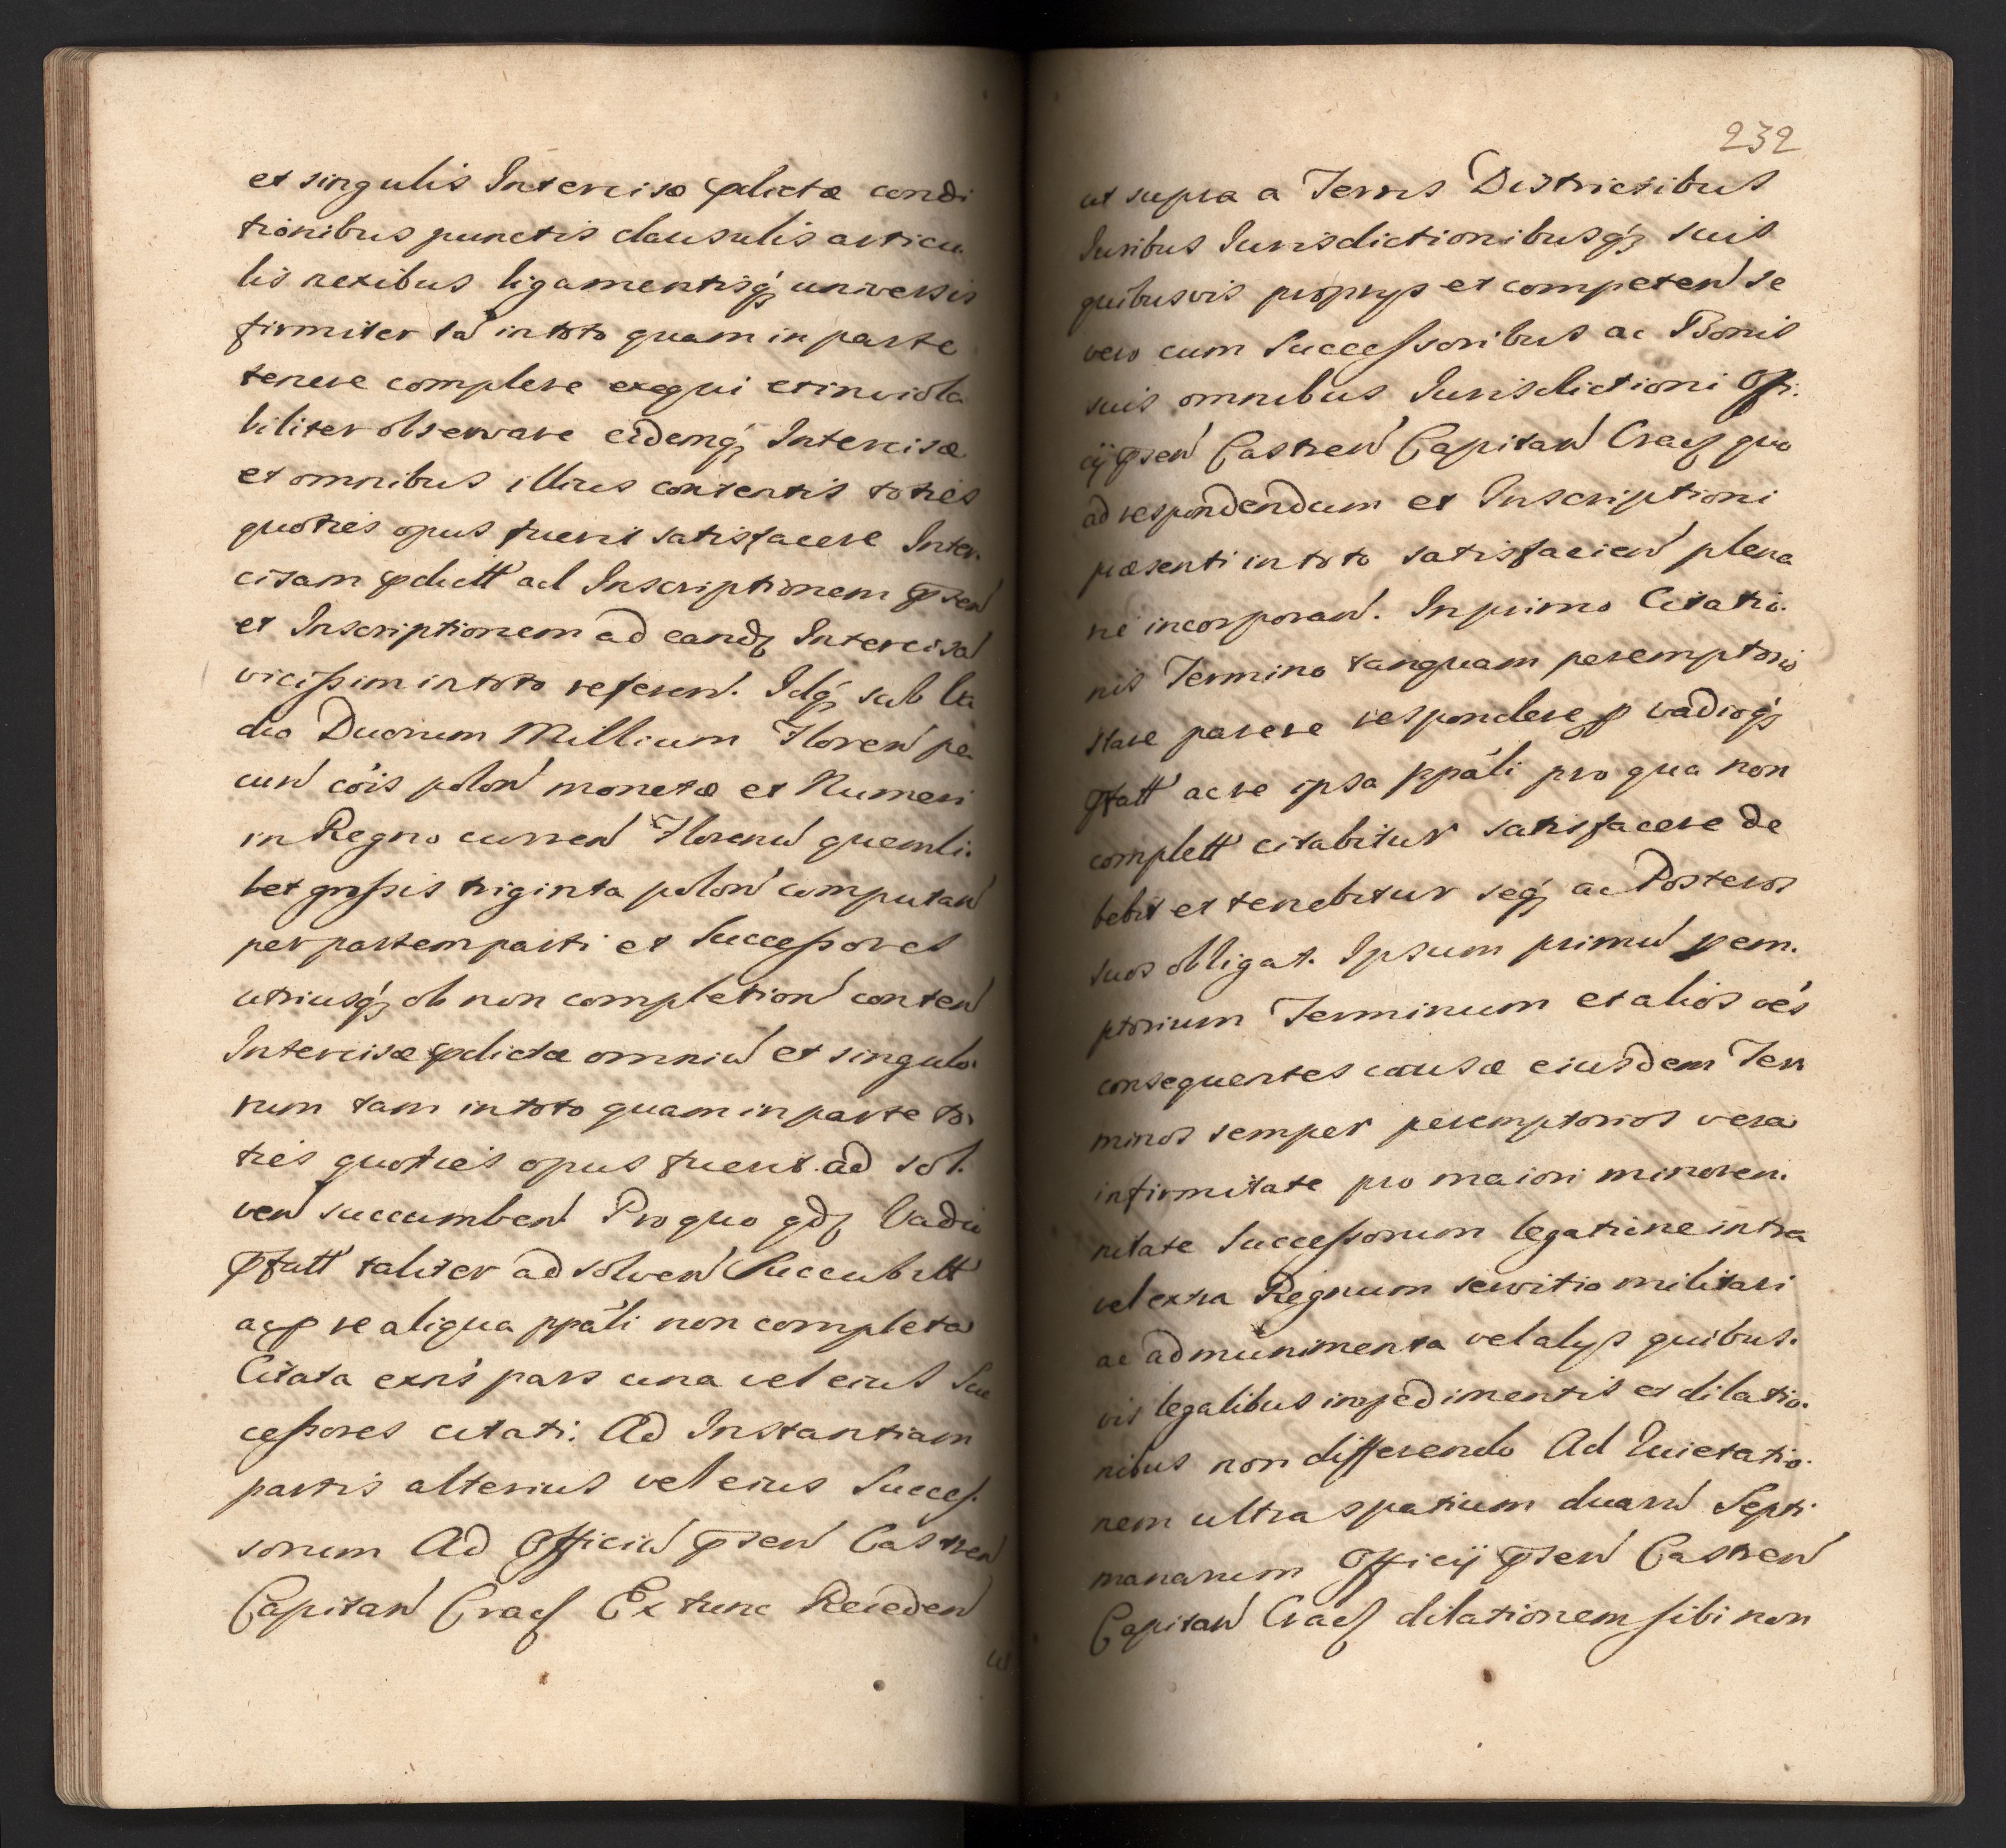 et singulis Intercisæ pdictæ condi
tionibus punctis clausulis articu
lis nexibus ligamentisq́ universis
firmiter tā in toto quam in parte
tenere complere exequi et inviola
biliter observare eidemq́ Intercisæ
et omnibus illius contentis toties
quoties opus fuerit satisfacere Inter
cisam pdictt ad Inscriptionem psen
et Inscriptionem ad eand Intercisā
vicissim in toto referen. Idq́ sub Va
dio Duorum Millium Floren pe
cun cōis polon monetæ et Numeri
in Regno curren Florenū quemli
bet grossis triginta polon computan
per partem parti et Successores
utriusq́ ob non completion conten
Intercisæ pdictæ omniū et singulo
rum tam in toto quam in parte to
ties quoties opus fuerit ad sol
ven succumben Pro quo qd Vadio
pfatt taliter ad solven Succubitt
acp re aliqua ppāli non completa
Citata exns pars una vel eius Suc
cessores citati: Ad Instantiam
partis alterius vel eius Succes
sorum Ad Officiū psen Castren
Capitan Crac Ex tunc Receden
ut
232
ut supra a Terris Districtibus
Iuribus Iurisdictionibusq́ suis
quibusvis proprys et competen se
vero cum Successoribus ac Bonis
suis omnibus Iurisdictioni Offi
cij psen Castren Capitan Crac quo
ad respondendum et Inscriptioni
præsenti in toto satisfacien plena
rié incorporan. In primo Citatio
nis Termino tanquam peremptorio
stare parere respondere p vadioq́
pfatt ac re ipsa ppāli pro qua non
complett citabitur satisfacere de
bebit et tenebitur seq́ ac Posteros
suos obligat. Ipsum primū perem
ptorium Terminum et alios oēs
consequentes causæ eiusdem Ter
minos semper peremptorios vera
infirmitate pro maiori minoren
nitate Successorum legatione intra
vel extra Regnum servitio militari
ac ad munimenta vel alys quibus
vis legalibus impedimentis et dilatio
nibus non differendo Ad Quietatio
nem ultra spatium duarū Septi
manarum Officij psen Castren
Capitan Crac dilationem sibi non